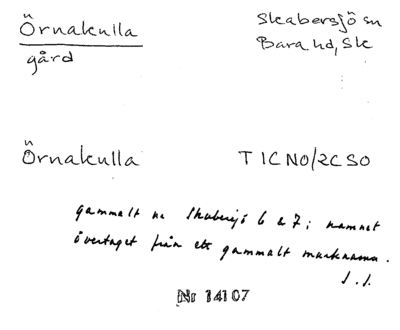 Örnakulla
gård
Skabersjö sn
Bara hd, Sk
Örnakulla
TICNO/2CSO
gammalt na Skabersjö 6 & 7; namnet
övertaget från ett gammalt marknamn.
J. J.
Nr 14107